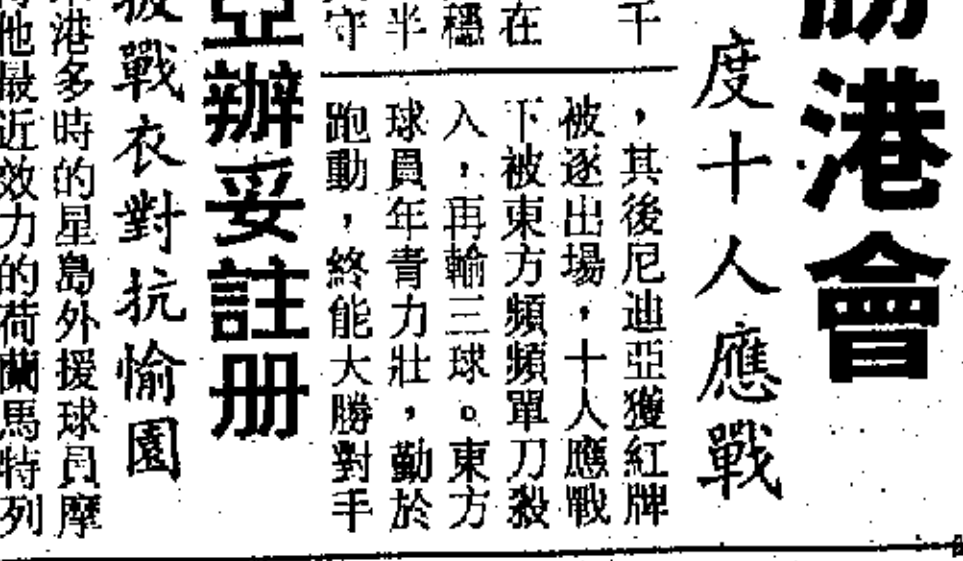 港會
度十人應戰
千
，其後尼迪亞獲紅牌
被逐出場，十人應戰
下被東方頻頻單刀殺
入，再輸三球。東方
球員年青力壯，勤於
跑動，終能大勝對手
在
穩
半
守
亞辦妥註册
披戰衣對抗愉園
港多時的星島外援球員摩
他最近效力的荷蘭馬特列